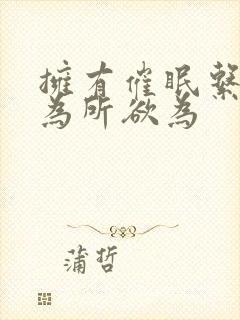 擁有催眠繫
為所欲為
蒲哲